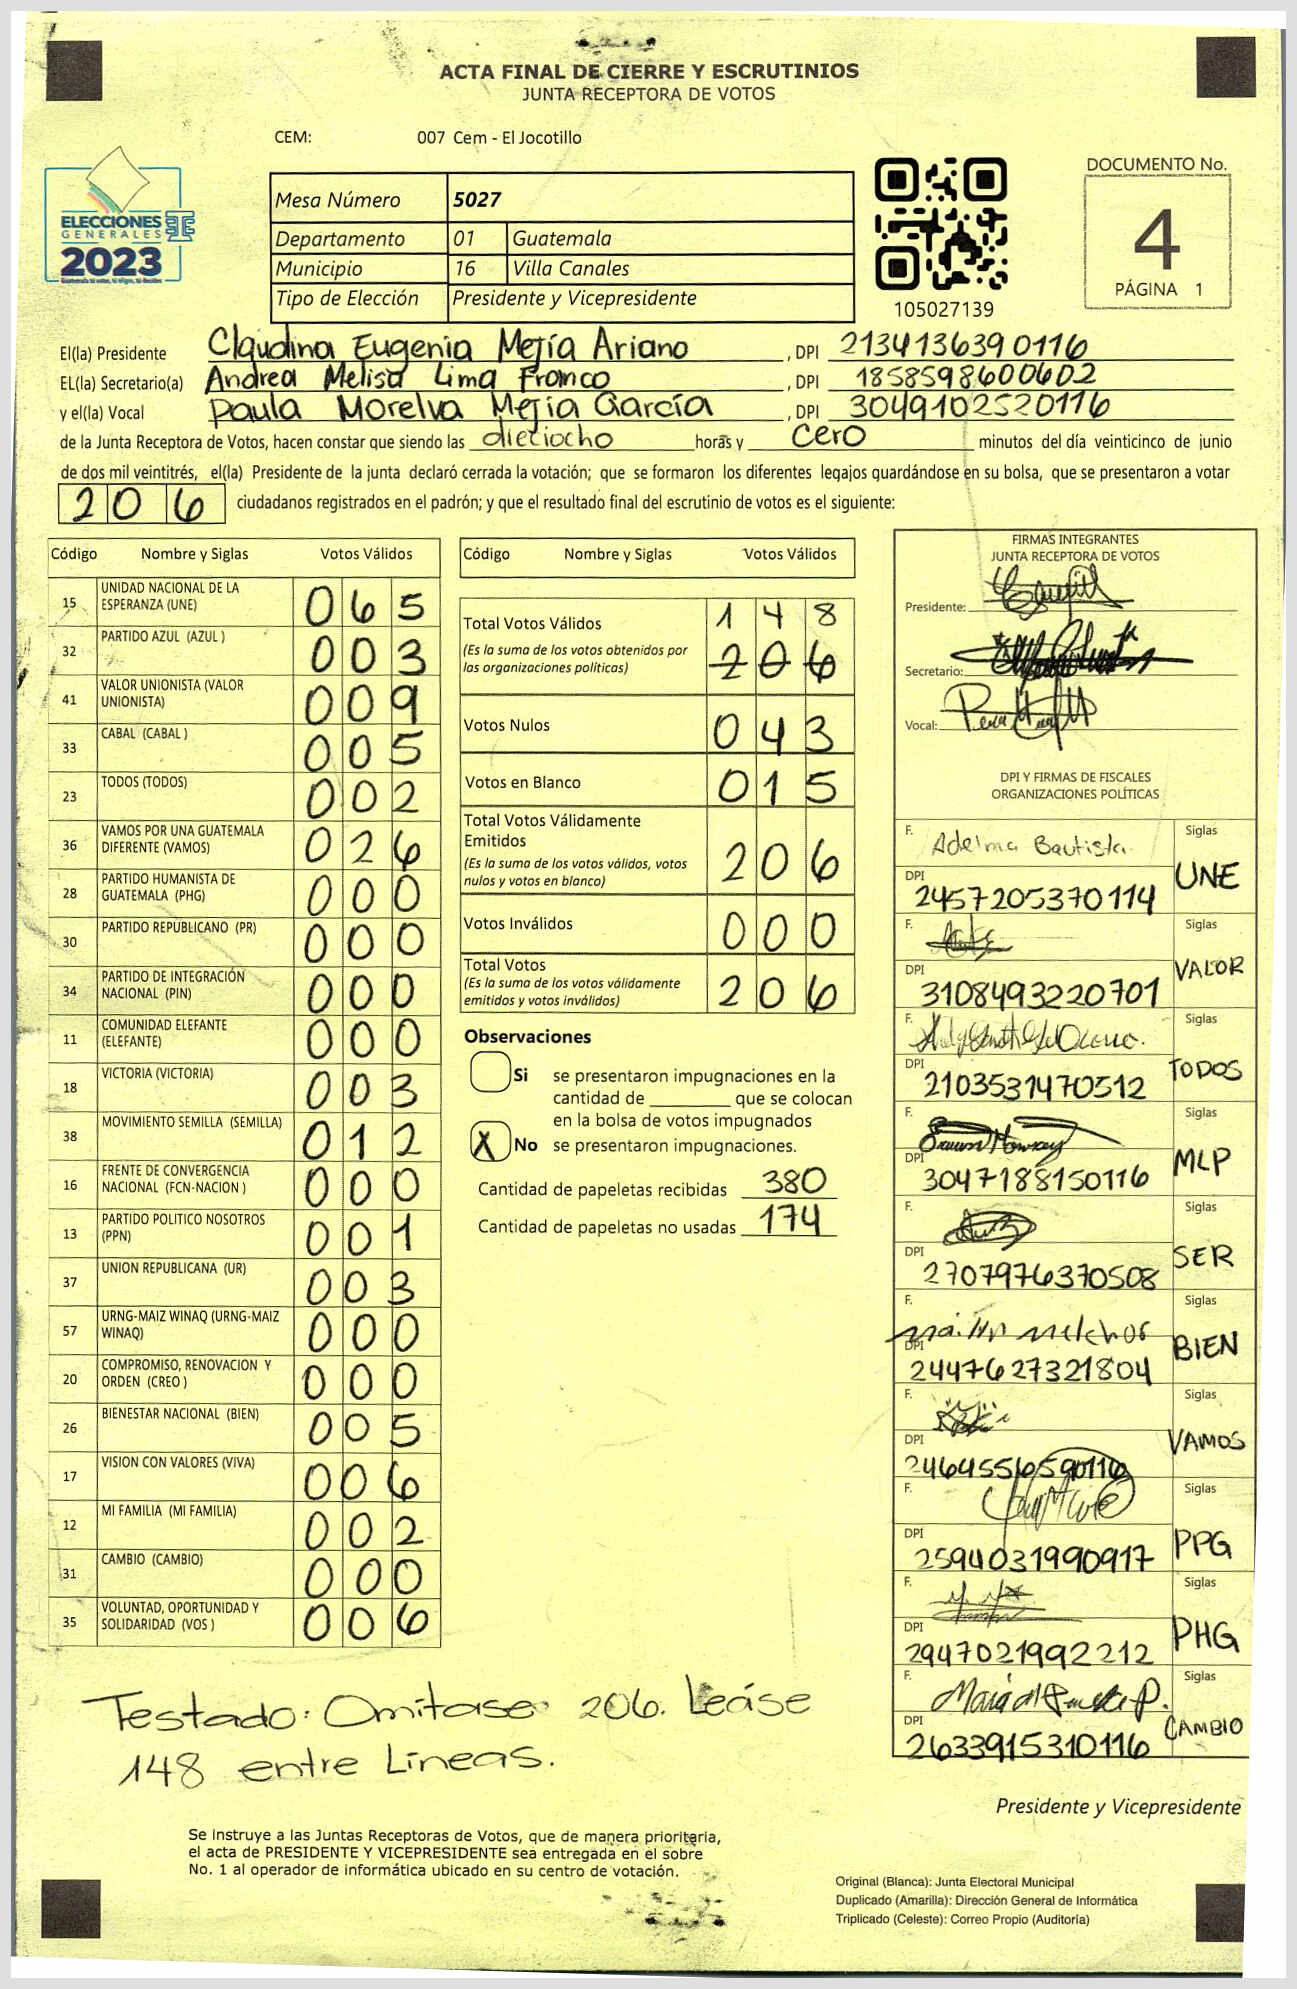 ACTA FINAL DE CIERRE Y ESCRUTINIOS
JUNTA RECEPTORA DE VOTOS
CEM: 007 Cem - El Jocotillo
ELECCIONES
GENERALES
2023
Mesa Número 5027
Departamento 01 Guatemala
Municipio 16 Villa Canales
Tipo de Elección Presidente y Vicepresidente
105027139
DOCUMENTO No.
4
PÁGINA 1
El(la) Presidente Claudina Eugenia Mejía Ariano , DPI 2134136390116
EL(la) Secretario(a) Andrea Melisa Lima Franco , DPI 1858598600602
y el(la) Vocal Paula Morelva Mejia García , DPI 3049102520116
de la Junta Receptora de Votos, hacen constar que siendo las dieciocho horas y cero minutos del día veinticinco de junio
de dos mil veintitrés, el(la) Presidente de la junta declaró cerrada la votación; que se formaron los diferentes legajos guardándose en su bolsa, que se presentaron a votar
206 ciudadanos registrados en el padrón; y que el resultado final del escrutinio de votos es el siguiente:
Código Nombre y Siglas Votos Válidos
15 UNIDAD NACIONAL DE LA ESPERANZA (UNE) 065
32 PARTIDO AZUL (AZUL ) 003
41 VALOR UNIONISTA (VALOR UNIONISTA) 009
33 CABAL (CABAL ) 005
23 TODOS (TODOS) 002
36 VAMOS POR UNA GUATEMALA DIFERENTE (VAMOS) 026
28 PARTIDO HUMANISTA DE GUATEMALA (PHG) 000
30 PARTIDO REPUBLICANO (PR) 000
34 PARTIDO DE INTEGRACIÓN NACIONAL (PIN) 000
11 COMUNIDAD ELEFANTE (ELEFANTE) 000
18 VICTORIA (VICTORIA) 003
38 MOVIMIENTO SEMILLA (SEMILLA) 012
16 FRENTE DE CONVERGENCIA NACIONAL (FCN-NACION ) 000
13 PARTIDO POLITICO NOSOTROS (PPN) 001
37 UNION REPUBLICANA (UR) 003
57 URNG-MAIZ WINAQ (URNG-MAIZ WINAQ) 000
20 COMPROMISO, RENOVACION Y ORDEN (CREO ) 000
26 BIENESTAR NACIONAL (BIEN) 005
17 VISION CON VALORES (VIVA) 006
12 MI FAMILIA (MI FAMILIA) 002
31 CAMBIO (CAMBIO) 000
35 VOLUNTAD, OPORTUNIDAD Y SOLIDARIDAD (VOS ) 006
Código Nombre y Siglas Votos Válidos
Total Votos Válidos 148
(Es la suma de los votos obtenidos por las organizaciones políticas) 206
Votos Nulos 043
Votos en Blanco 015
Total Votos Válidamente Emitidos
(Es la suma de los votos válidos, votos nulos y votos en blanco) 206
Votos Inválidos 000
Total Votos
(Es la suma de los votos válidamente emitidos y votos inválidos) 206
Observaciones
Si se presentaron impugnaciones en la
cantidad de ________ que se colocan
en la bolsa de votos impugnados
X No se presentaron impugnaciones.
Cantidad de papeletas recibidas 380
Cantidad de papeletas no usadas 174
FIRMAS INTEGRANTES
JUNTA RECEPTORA DE VOTOS
Presidente:
Secretario:
Vocal:
DPI Y FIRMAS DE FISCALES
ORGANIZACIONES POLÍTICAS
F. Adelma Bautista Siglas
DPI 2457205370114 UNE
F. Siglas
DPI 3108493220701 VALOR
F. Siglas
DPI 2103531470512 TODOS
F. Siglas
DPI 3047188150116 MLP
F. Siglas
DPI 2707976370508 SER
F. melchor Siglas
DPI 2447627321804 BIEN
F. Siglas
DPI 2464556590116 VAMOS
F. Siglas
DPI 2594031990917 PPG
F. Siglas
DPI 2947021992212 PHG
F. Siglas
DPI 2633915310116 CAMBIO
Testado: Omitase 206. Leáse
148 entre Líneas.
Presidente y Vicepresidente
Se instruye a las Juntas Receptoras de Votos, que de manera prioritaria,
el acta de PRESIDENTE Y VICEPRESIDENTE sea entregada en el sobre
No. 1 al operador de informática ubicado en su centro de votación.
Original (Blanca): Junta Electoral Municipal
Duplicado (Amarilla): Dirección General de Informática
Triplicado (Celeste): Correo Propio (Auditoría)